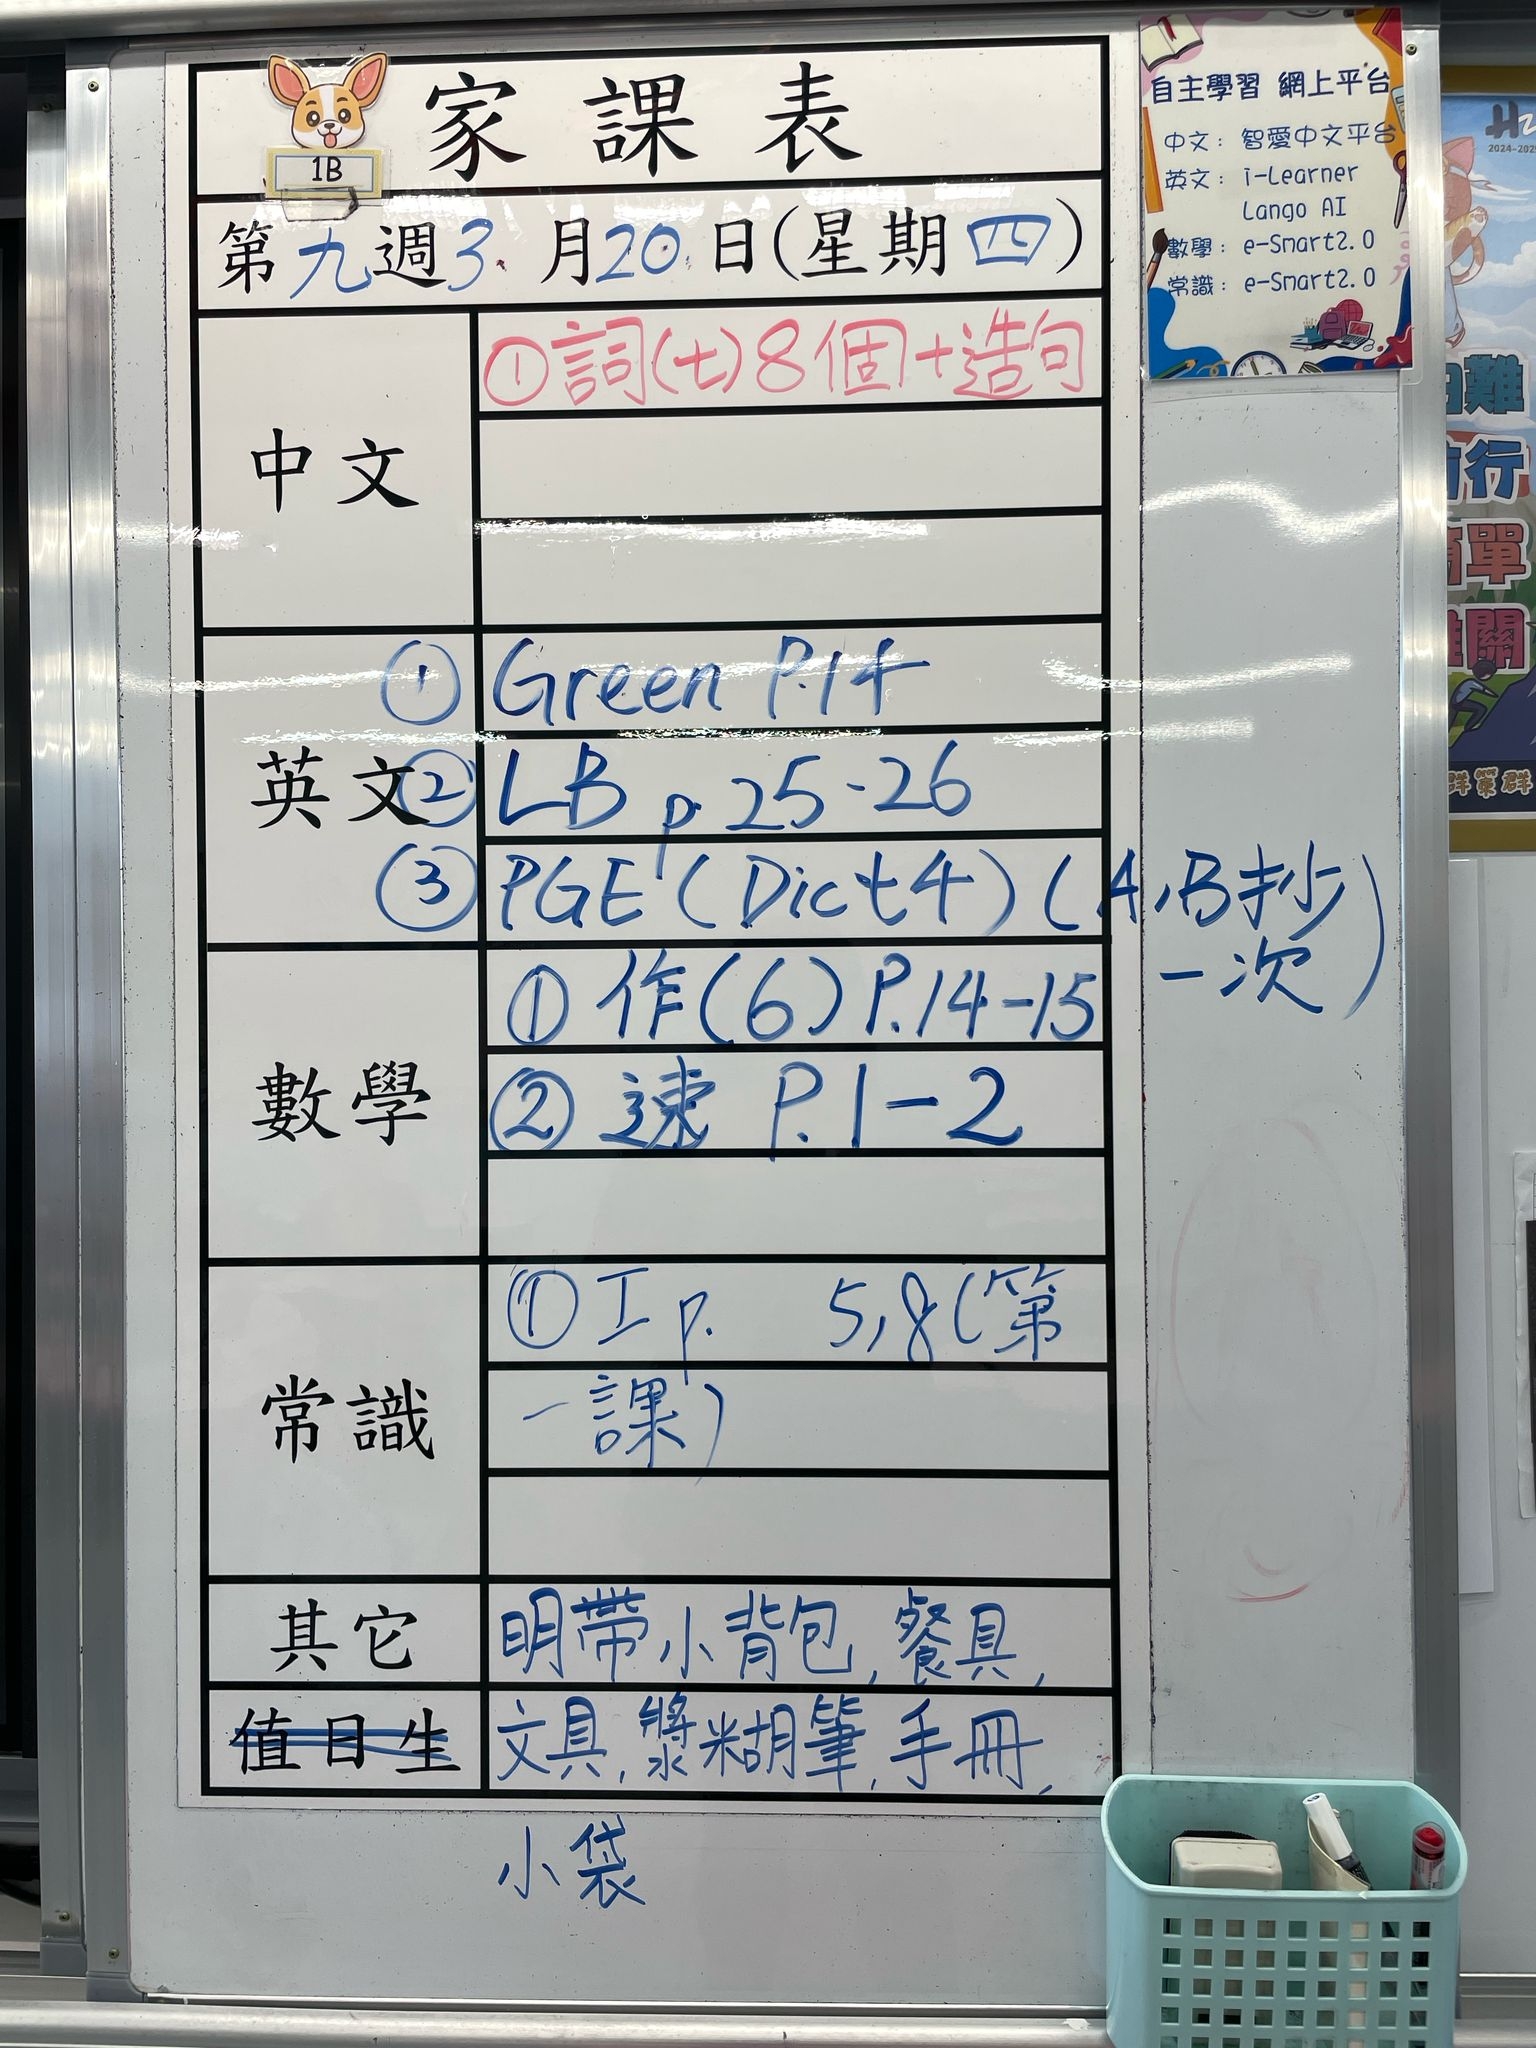 家課表
1B
第九週3月20日(星期四)
中文
①詞(七)8個+造句
英文
① Green P.14
② LB p 25-26
③ PGE (Dict 4) (A,B抄
一次)
數學
① 作(6) P.14-15
② 速 P.1-2
常識
① 工 p. 5,8(第
一課)
其它
明帶小背包,餐具,
值日生
文具,漿糊筆,手冊,
小袋
自主學習 網上平台
中文：智愛中文平台
英文：i-Learner
Lango AI
數學：e-Smart2.0
常識：e-Smart2.0
2024-2025
難
行
單
關
群策群